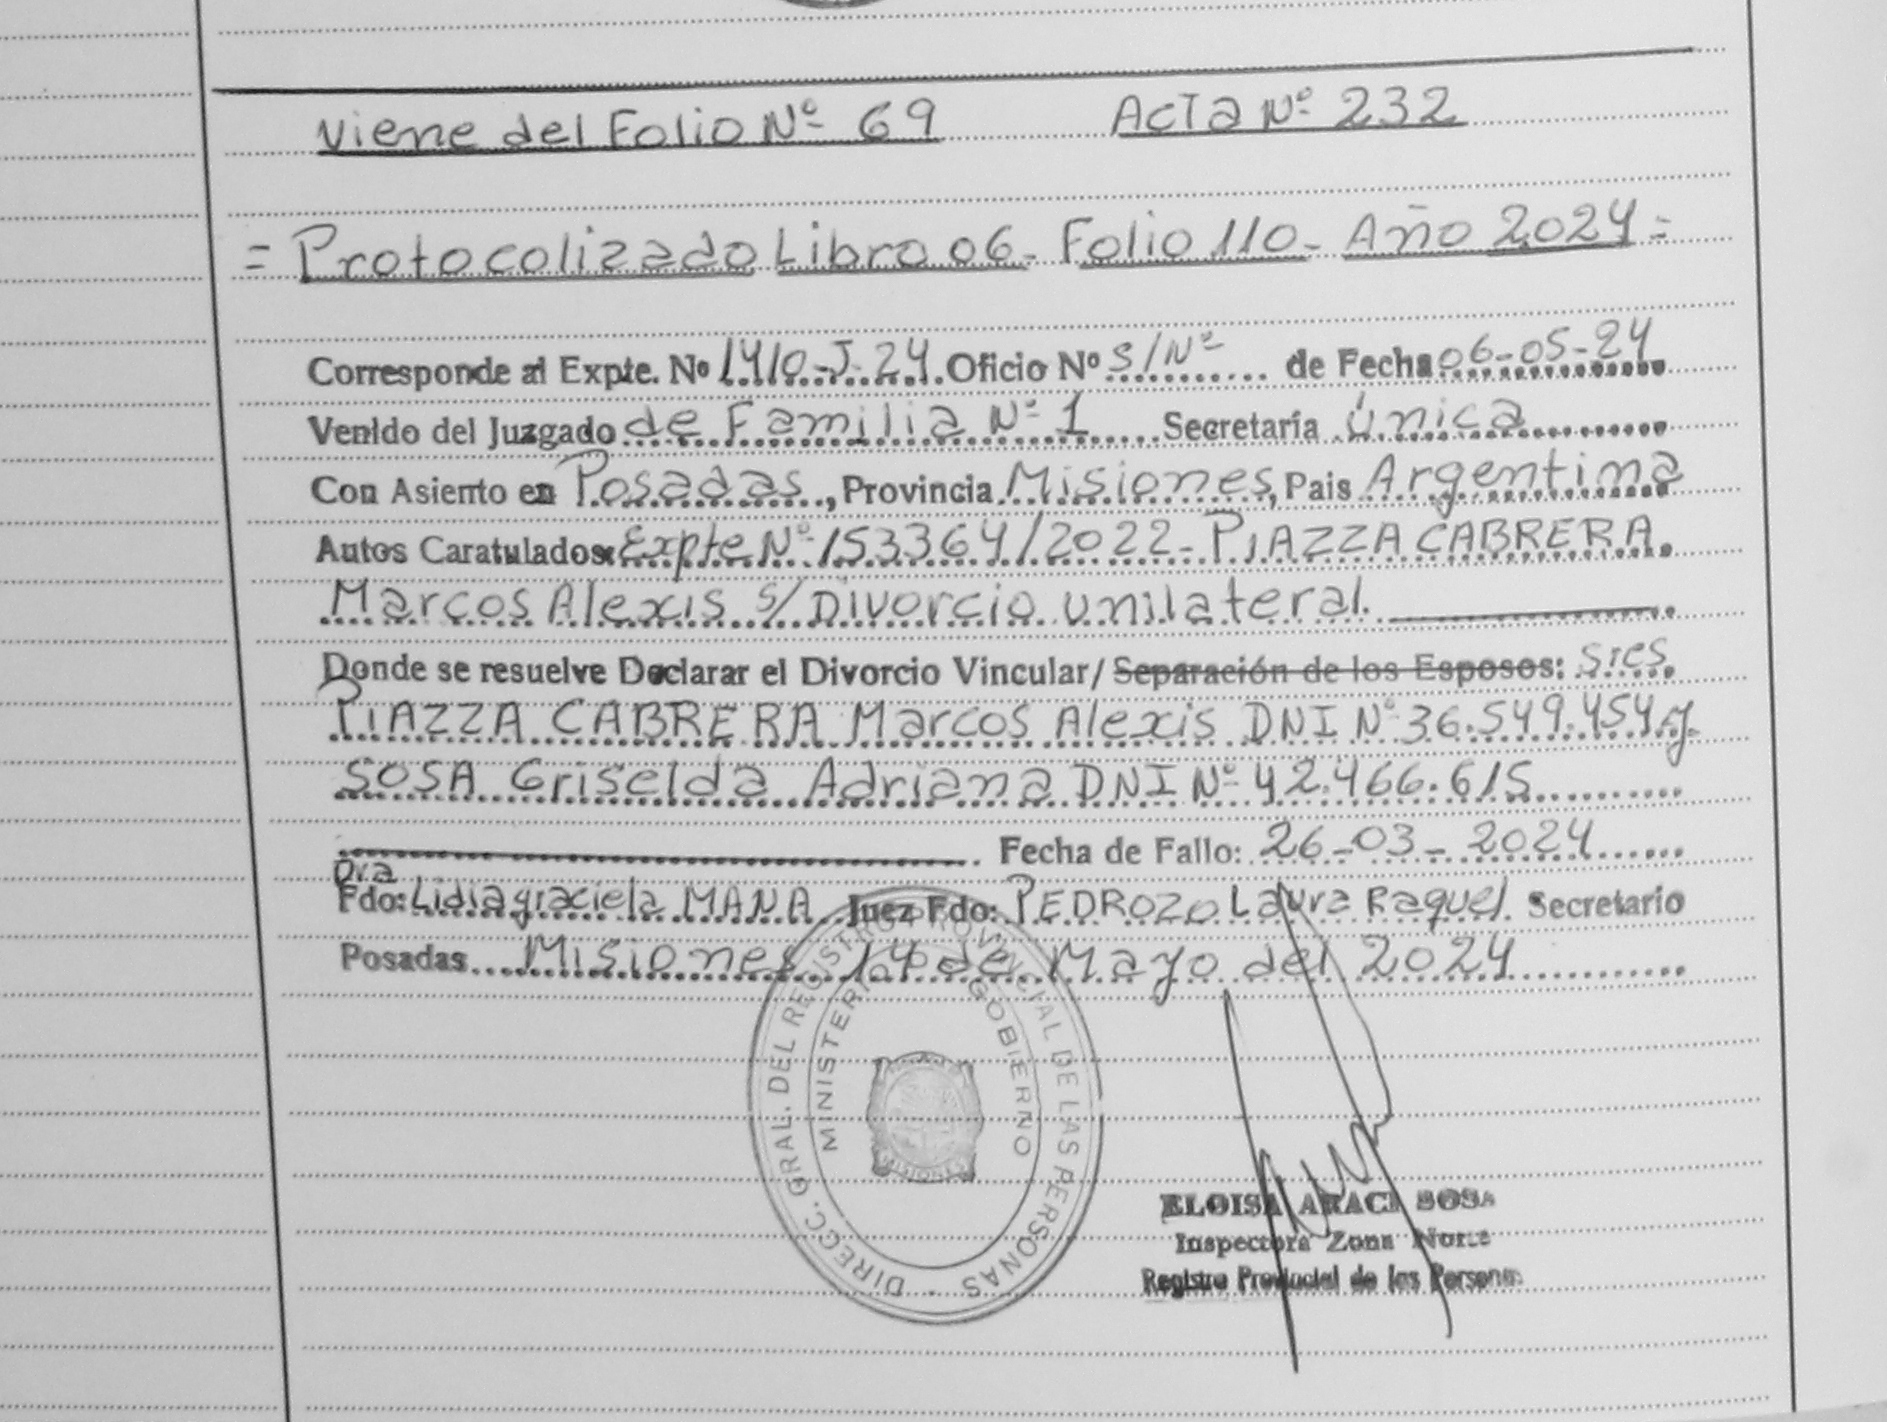 Viene del Folio Nº 69 Acta Nº 232
= Protocolizado Libro 06- Folio 110- Año 2024=
Corresponde al Expte. Nº 1410-J-24. Oficio Nº S/Nº de Fecha 06-05-24
Venido del Juzgado de Familia Nº 1 Secretaría Única
Con Asiento en Posadas, Provincia Misiones, Pais Argentina
Autos Caratulados: Expte Nº 153364/2022- PIAZZA CABRERA
Marcos Alexis S/Divorcio unilateral.
Donde se resuelve Declarar el Divorcio Vincular/ Separación de los Esposos: Sres.
PIAZZA CABRERA Marcos Alexis DNI Nº 36.549.454 y
SOSA Griselda Adriana DNI Nº 42.466.615
Fecha de Fallo: 26-03-2024
Dra
Fdo: Lidia graciela MANA Juez Fdo: PEDROZO Laura Raquel Secretario
Posadas Misiones 14 de Mayo del 2024
DIRECC. GRAL. DEL REGISTRO PROVINCIAL DE LAS PERSONAS
GOBIERNO
MISIONES
ELOISA ARACI SOSA
Inspectora Zona Norte
Registro Provincial de las Personas